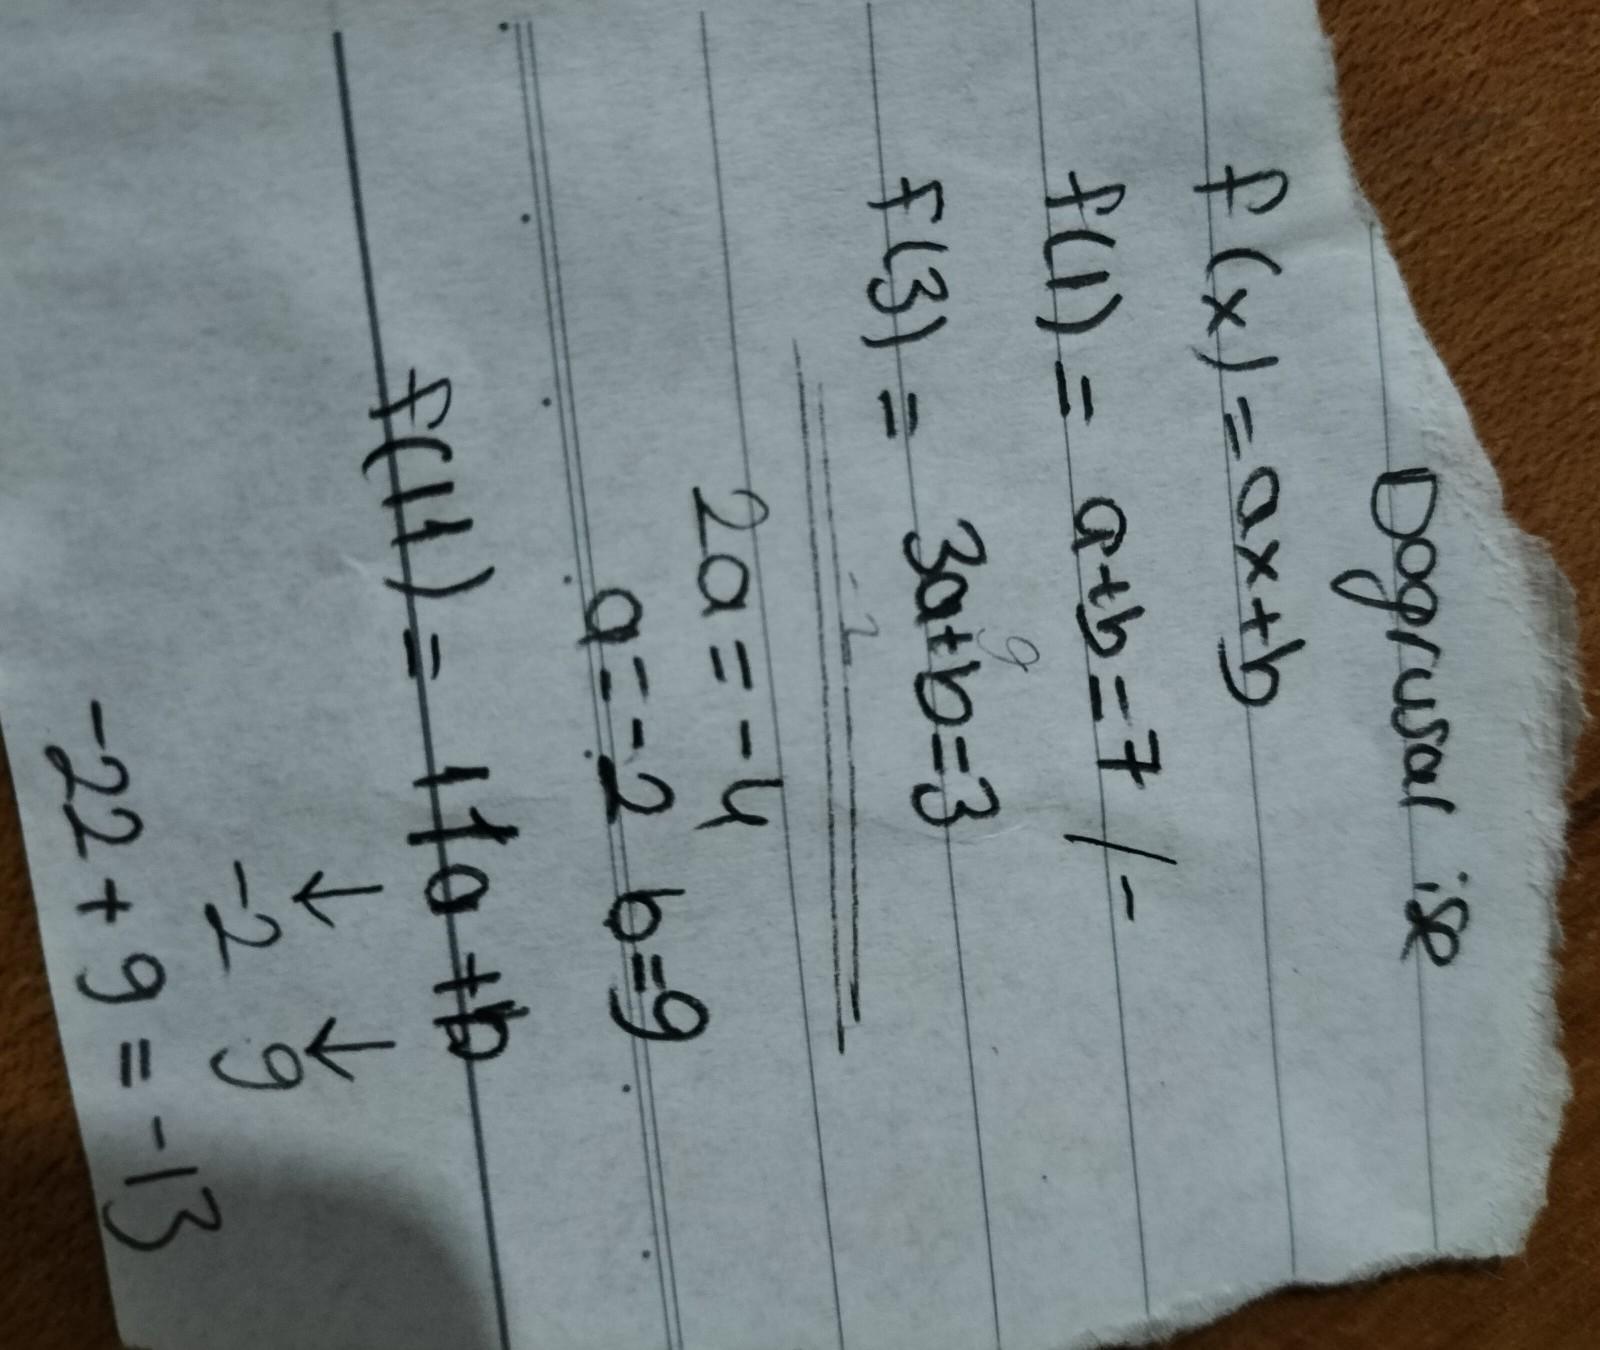 Dogrusal ise
f(x) = ax+b
f(1) = a+b=7 / -
f(3) = 3a+b=3
2a = -4
a=-2 b=9
f(11) = 11a+b
↓ ↓
-2 9
-22+9=-13